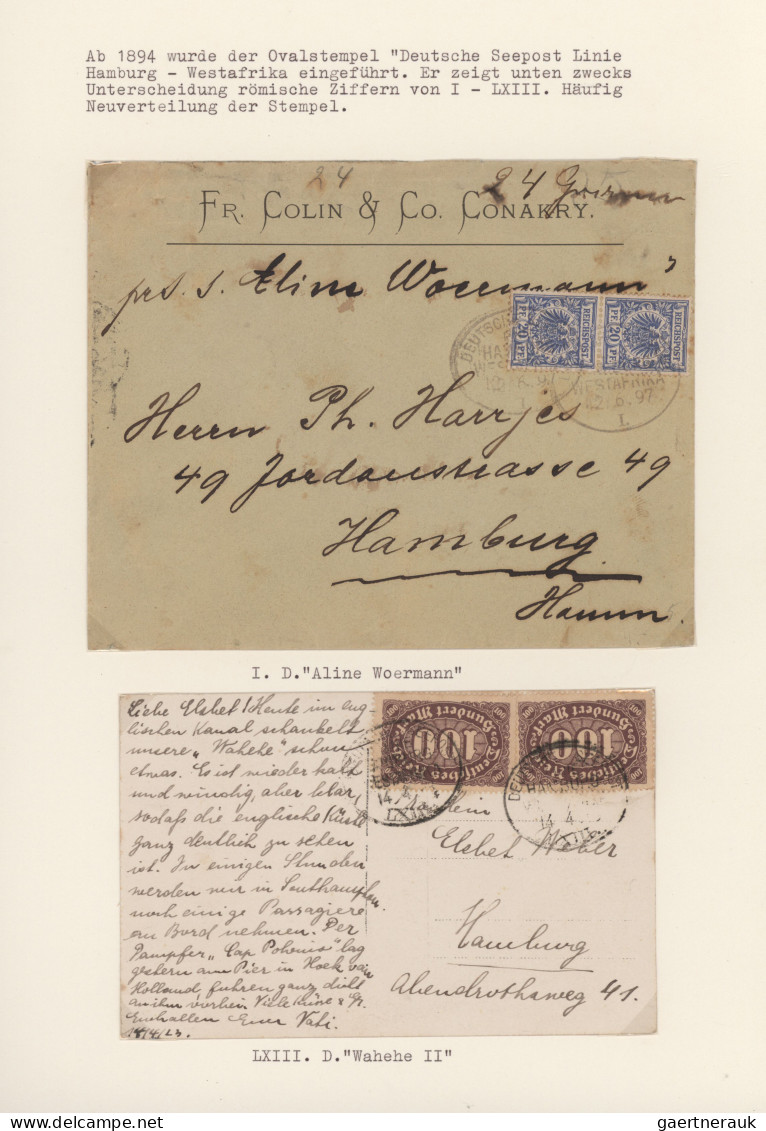 Ab 1894 wurde der Ovalstempel "Deutsche Seepost Linie
Hamburg - Westafrika eingeführt. Er zeigt unten zwecks
Unterscheidung römische Ziffern von I - LXIII. Häufig
Neuverteilung der Stempel.
24
24
FR. COLIN & CO. CONAKRY.
Aline Woermann"
REICHSPOST
20 PF.
REICHSPOST
20 PF.
DEUTSCHE
WESTAFRIKA
12.6.97
I.
WESTAFRIKA
12.6.97
I.
Herrn Ph. Harrjes
49 Jordanstrasse 49
Hamburg
Hamm.
I. D."Aline Woermann"
Liebe Elsbet! Heute im eng-
lischen Kanal schaukelt
unsere „Wahehe" schon
etwas. Es ist wieder kalt
und windig, aber klar,
sodaß die englische Küste
ganz deutlich zu sehen
ist. In einigen Stunden
werden wir in Southampton
noch einige Passagiere
an Bord nehmen. Der
Dampfer „Cap Polonio" lag
gestern am Pier in Hoek van
Holland, fuhren ganz dicht
an ihm vorbei. Viele Küsse & Gr.
Euch allen Euer Vati.
14/4/23.
100
Hundert Mark
Deutsches Reich
100
Hundert Mark
Deutsches Reich
LXIII
14 4
Elsbet Weber
Hamburg
Abendrothsweg 41.
LXIII. D."Wahehe II"
gaertnerauk